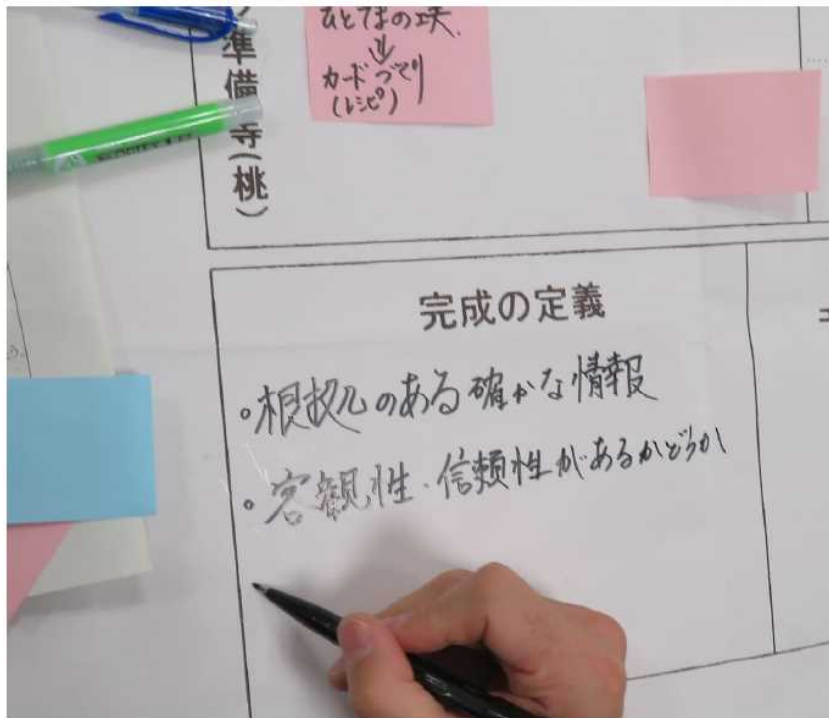 準備
(桃)
カードづくり
(レシピ)
完成の定義
・根拠のある確かな情報
・客観性・信頼性があるかどうか